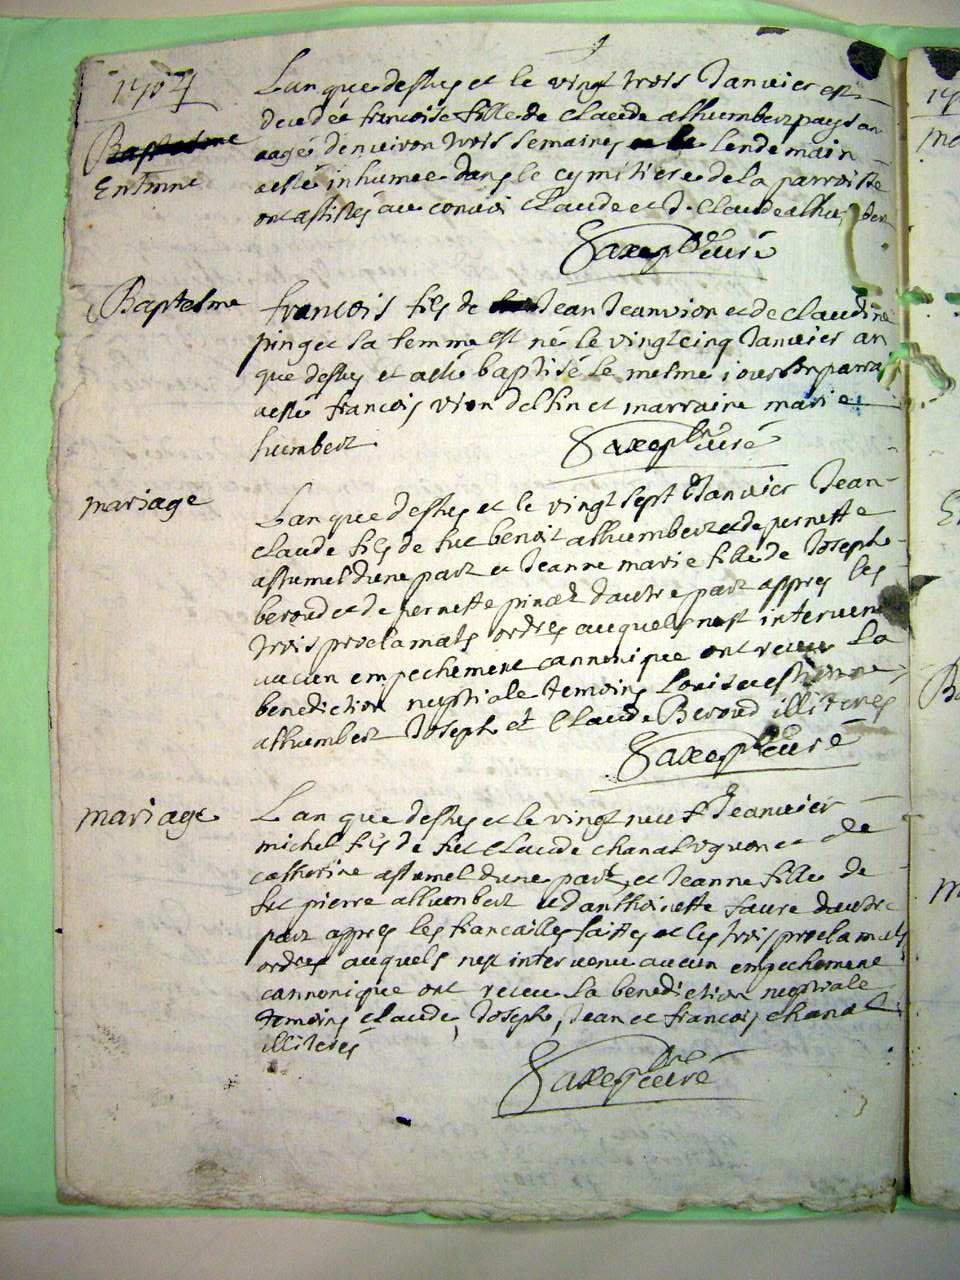 1704
Lan que dessus et le vingt trois Janvier est
decedée francoise fille de Claude althumbert paysan
Baptesme
aagé denviron trois semaines et le lendemain
Enterme
aesté inhumee dans le cymitiere de la parroisse
ont assistés au convoi Claude et d. Claude
Saxe ptre curé
Baptesme
francois fils de Jean Jeanvion et de Claudine
pinget sa femme est né le vingt cinq Janvier an
que dessus et aesté baptisé le mesme iour son parra
aesté francois vion delfin et marraine marie
humbert
Saxe ptre curé
mariage
Lan que dessus et le vingt sept Janvier Jean
Claude fils de fut benoit althumbert et de pernette
assumel dune part et Jeanne marie fille de Joseph
beroud et de pernette pinard dautre part appres les
trois proclamats ordres auquels nest intervenu
aucun empechement cannonique ont receu La
benediction nuptiale temoins Louis estienne
althumbert Joseph et Claude Beroud illiteres
Saxe ptre curé
mariage
Lan que dessus et le vingt neuf Jeanvier
michel fils de fut Claude chanal vguon et de
catherine assumel dune part, et Jeanne fille de
fut pierre althumbert et danthoinette faure dautre
part appres les fiancailles faittes et les trois proclamats
ordres auquels nest intervenu aucun empechement
cannonique ont receu La benediction nuptiale
temoins Claude, Joseph, Jean et francois chanal
illiterés
Saxe ptre curé